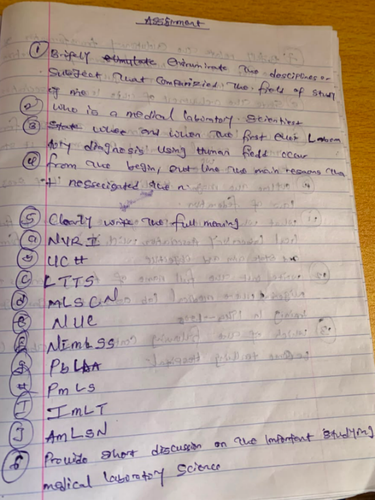 Assignment
① Briefly Enuminate The desciplines or
Subject That comparisied The field of study
of me
② who is a medical laboratory Scientist
③ where and when The first ever Labora
tory diagnosis using Human field occur
④ from The begin, out line The main reasons tha
t necessiated The
⑤ Clearly write The full meaning
ⓐ NVRI
ⓑ UCH
ⓒ LTTS
ⓓ MLSCN
ⓔ NUC
NIMLSS
PbLAA
PMLS
I IMLT
J AMLSN
⑥ Provide short discussion on The important studying
medical laboratory Science